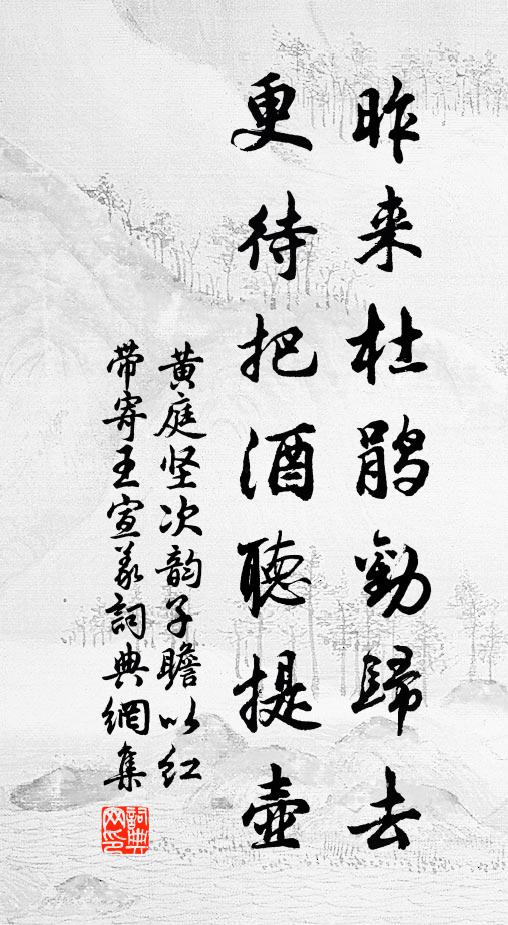 昨来杜鹃勸歸去
更待把酒聽提壺
黄庭坚次韵子瞻以红
带寄王宣義詞典網集
詞典
网印